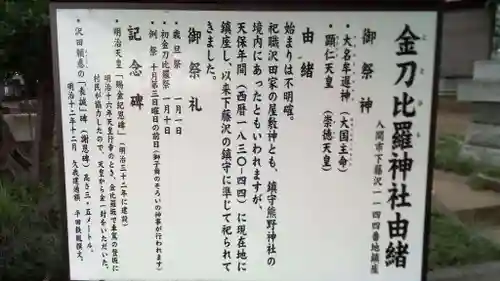 金刀比羅神社由緒
入間市下藤沢一一四四番地鎮座
御祭神
・大名牟遅神(大国主命)
・顕仁天皇(崇徳天皇)
由緒
始まりは不明確。
祀職沢田家の屋敷神とも、鎮守熊野神社の
境内にあったともいわれますが、
天保年間(西暦一八三〇-四四)に現在地に
鎮座し、以来下藤沢の鎮守に準じて祀られて
きました。
御祭礼
・歳旦祭 一月一日
・初金刀比羅祭 一月十日
・例祭 十月第三日曜日の前日(御子舞のそろいの神事が行われます)
記念碑
・明治天皇「賜金紀恩碑」(明治三十二年に建設)
明治十六年天皇行幸のとき、金比羅坂で車駕の登坂に
村民が協力したので、天皇から金一封をいただいた。
・沢田頼意の「表誠」碑(謝恩碑)高さ三・五メートル。
明治十二年十二月